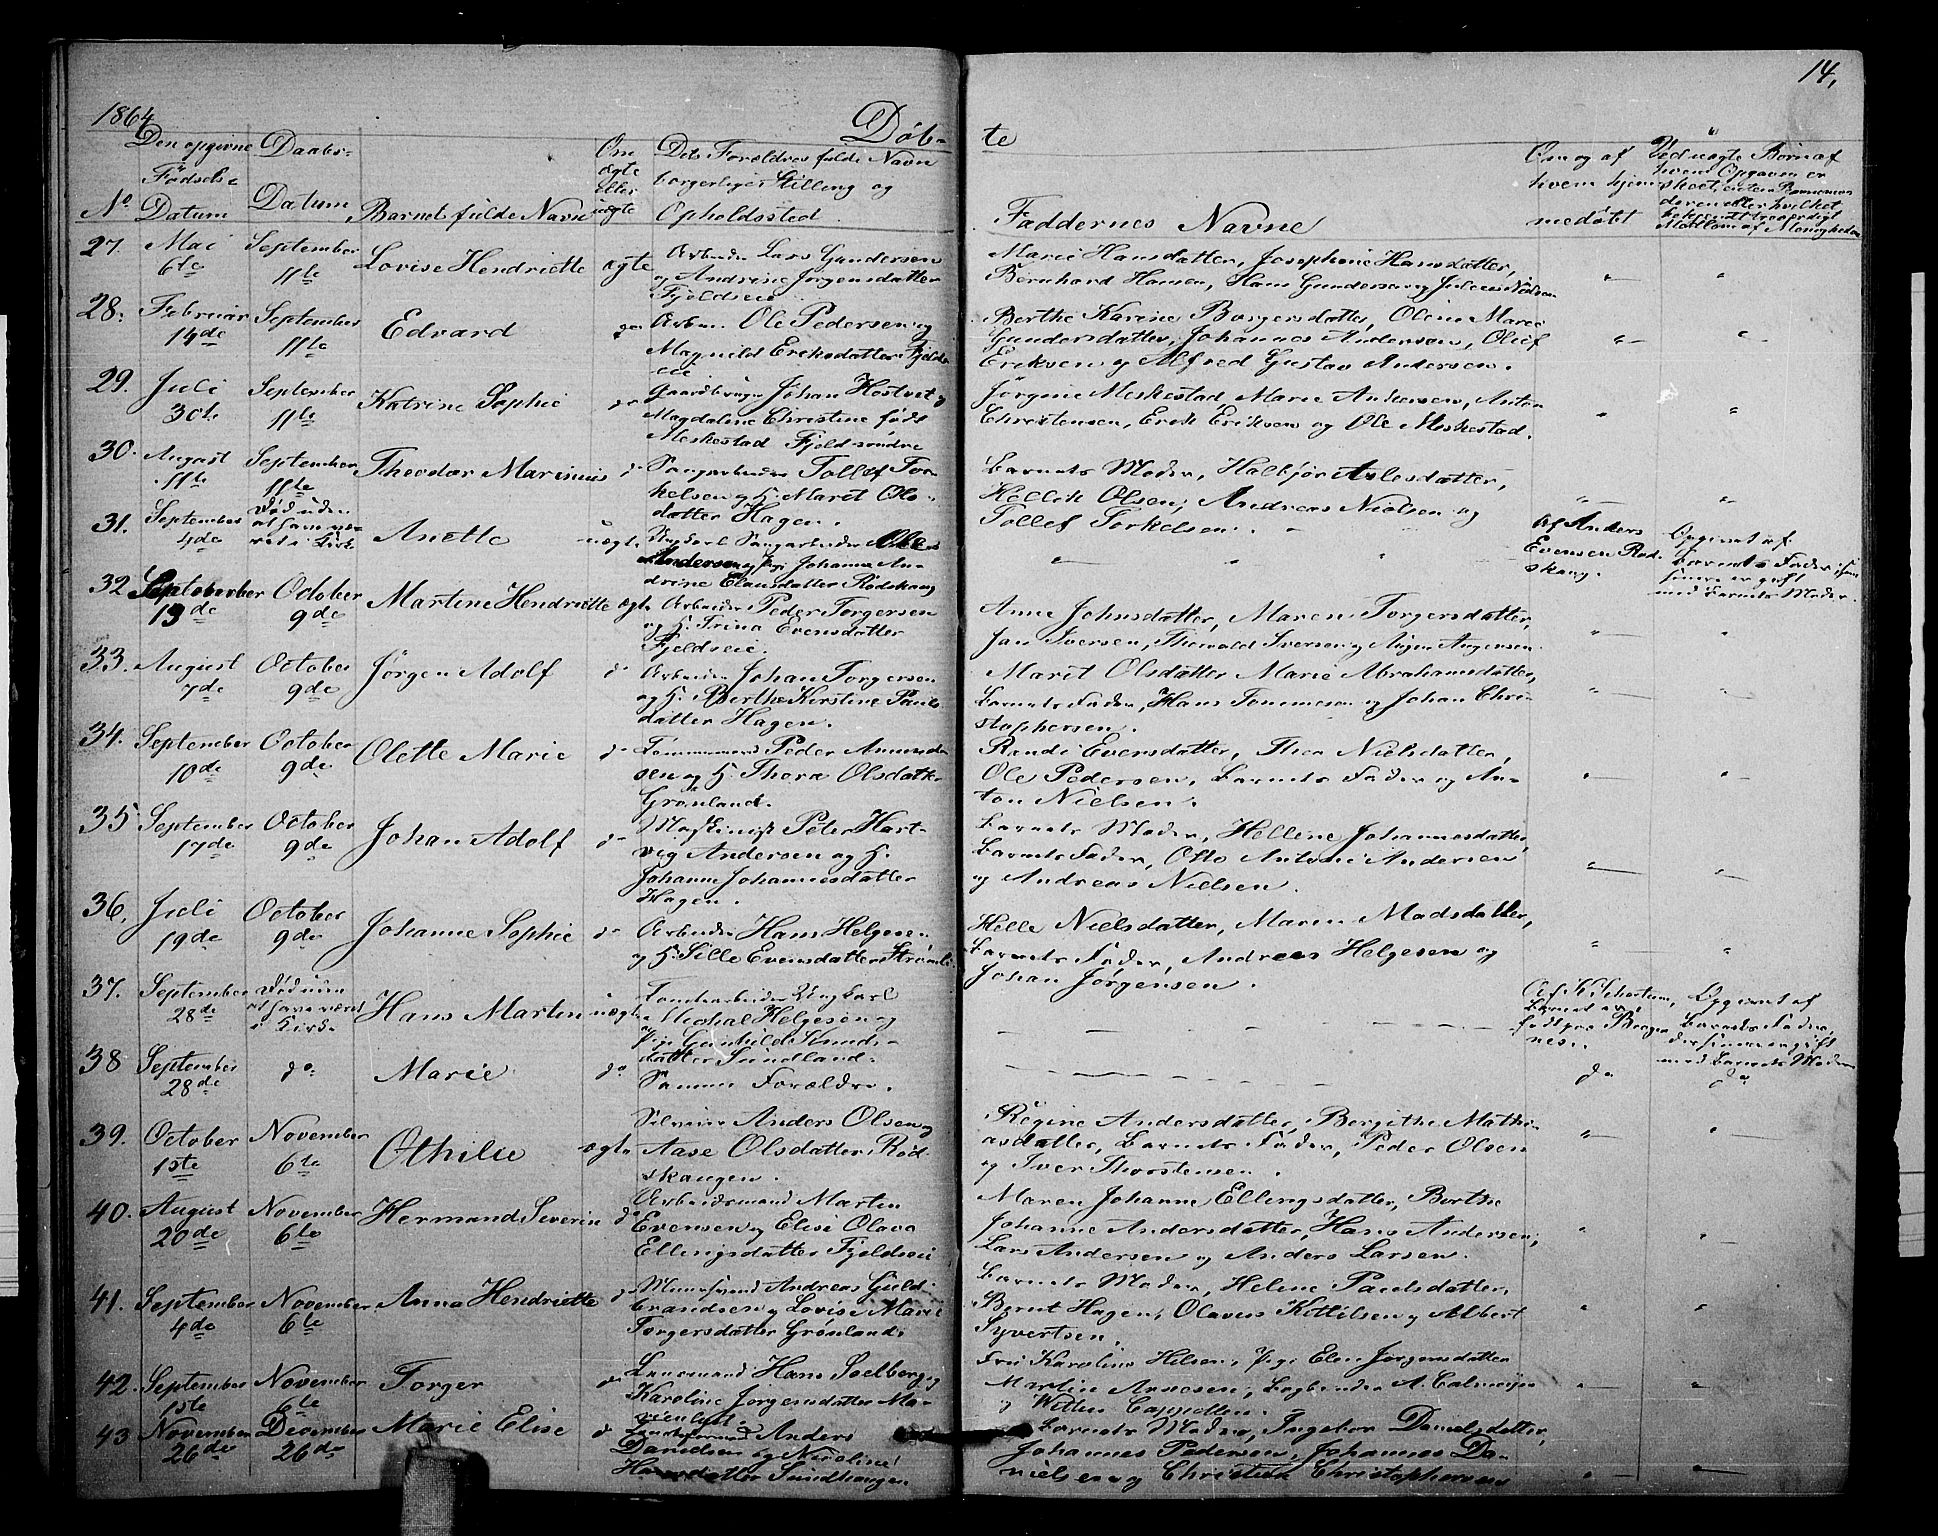 1864
14,
Döb-
te
Den opgivne
Födsels-
Datum
Daabs-
Datum
No
Barnets fulde Navn
Om
ægte
eller
uægte
Dets Forældres fulde Navn
borgerlige Stilling og
Opholdssted
Faddernes Navne
Om og af
hvem hjem-
medöbt
Ved uægte Börn af
hvem Opgaven er
27 Mai 6te September 11te Lovise Hendriette ægte
Arbeider Lars Gundersen
og Andrine Jörgensdatter
Fjeldseie
Marie Hansdatter, Josephine Hansdatter,
Bernhard Hansen, Hans Gundersen og Julius Nilsen
28. Februar 14de September 11te Edvard do
Arbm. Ole Pedersen og
Magnild Eriksdatter Fjelds-
eie
Berthe Karine Borgersdatter, Oline Marie
Gundersdatter, Johannes Andersen, Oluf
Eriksen og Alfred Gustav Andersen.
29. Juli 30te September 11te Katrine Sophie do
Gaardbruger Johan Hostvet og
Magdaline Christine födt
Meskestad Fjeld söndre
Jörgine Meskestad, Marie Andersen, Anton
Christensen, Erik Eriksen og Ole Meskestad.
30. August 11te September 11te Theodor Marinius do
Saugarbeider Tollef Tor-
kelsen og H. Maret Ols-
datter Hagen.
Barnets Moder, Halbjör Aslesdatter,
Kittil Olsen, Andreas Nielsen og
Tollef Torkelsen.
31. September 4de Död uden
at have væ-
ret i Kirke
Anette uægte
Ungkarl Saugarbeider Ole
Andersen og Pige Johanne An-
drine Clausdatter Rödskaug
Af Anders
Evensen Röd-
skaug.
Opgivet af
Barnets Fader, som
senere er gift
med Barnets Moder.
32 September 13de October 9de Martine Hendriette ægte
Arbeider Peder Torgersen
og H. Trina Evensdatter
Fjeldseie.
Anne Johnsdatter, Maren Torgersdatter,
Jan Iversen, Thorvald Iversen og Augen Augensen.
33. August 7de October 9de Jörgen Adolf do
Arbeider Johan Torgersen
og H. Berthe Kirstine Pauls-
datter Hagen.
Marit Olsdatter Marie Abrahamsdatter,
Barnets Fader, Hans Tommesen og Johan Chri-
stophersen.
34. September 10de October 9de Olette Marie do
Tömmermand Peder Amund-
sen og H. Thora Olsdatter
Grönland.
Randi Evensdatter, Thea Nielsdatter,
Ole Pedersen, Barnets Fader og An-
ton Nielsen.
35 September 17de October 9de Johan Adolf do
Maskinist Peter Hart-
vig Andersen og H.
Johanne Johannesdatter
Hagen.
Barnets Moder, Hellene Johannesdatter,
Barnets Fader, Otto Antoni Andersen
og Andreas Nielsen.
36. Juli 19de October 9de Johanne Sophie do
Arbeider Hans Helgesen
og H. Sille Evensdatter Strömli
Helle Nielsdatter, Maren Madsdatter,
Barnets Fader, Andreas Helgesen og
Johan Jörgensen.
37. September 28de Död uden
at have været
i Kirke
Hans Martin uægte
Tomtearbeider Ungkarl
Michal Helgesen og
Pige Gunhild Knuds-
datter Sundland.
Barnets Fader,
der senere er gift
med Barnets Moder
38 September 28de do Marie do
Samme Forældre.
do
do
39. October 1ste November 6te Othilie ægte
Selveier Anders Olsen og
Aase Olsdatter Röd-
skaugen.
Regine Andersdatter, Bergithe Mathi-
asdatter, Barnets Fader, Peder Olsen
og Iver Thorstensen.
40. August 20de November 6te Hermand Severin do
Arbeidsmand Martin
Evensen og Elise Olava
Ellingsdatter Fjeldseie
Maren Johanne Ellingsdatter, Berthe
Johanne Andersdatter, Hans Andersen,
Lars Andersen og Anders Larsen.
41. September 4de November 6te Anna Hendriette do
Muursvend Andreas Guld-
brandsen og Lovise Marie
Torgersdatter Grönland.
Barnets Moder, Helene Paulsdatter,
Bernt Hagen, Olavus Kittilsen og Albert
Syvertsen.
42. September 1ste November 6te Torger do
Lensmand Hans Soelberg og
Karoline Jörgensdatter Ma-
rienlyst.
Fru Karoline Hilsen, Pige Elen Jörgensdatter
Martin Arnesen, A. Calmeijer
og Willem Cappelen.
43 November 26de December 26de Marie Elise do
Anders
Danielsen og Karoline
Hansdatter Sundhaugen
Barnets Moder, Ingebor Danielsdatter,
Johannes Pedersen, Johannes Da-
nielsen og Christian Christophersen